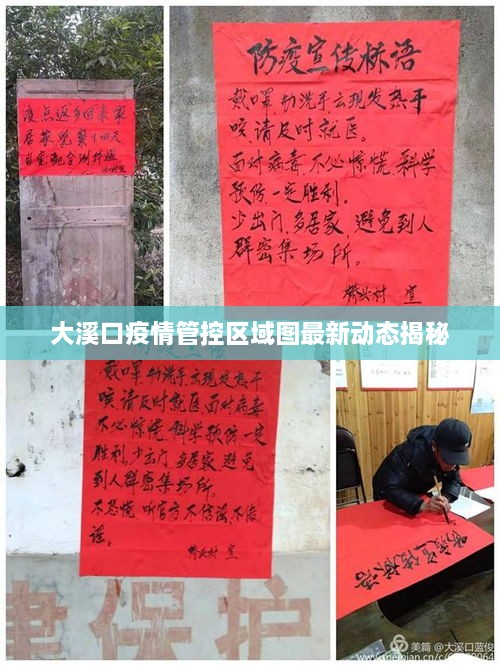 疫点返乡回来家
居家观察十四天
自觉配合测体温
防疫宣传标语
戴口罩勤洗手出现发热干
咳请及时就医。
面对病毒不必惊慌,科学
预防一定胜利。
少出门,多居家,避免到人
群密集场所。
桥头村 宣
大溪口疫情管控区域图最新动态揭秘
戴口罩勤洗手出现发热干
咳,请及时就医面对病毒
不必惊慌,科学预防一定
胜利,少出门,多居家,避免
到人群密集场所。
不恐慌 听官方 不信谣,不传
谣。
桥头村 宣
保护
防疫宣传标语
美篇 @大溪口蓝俊